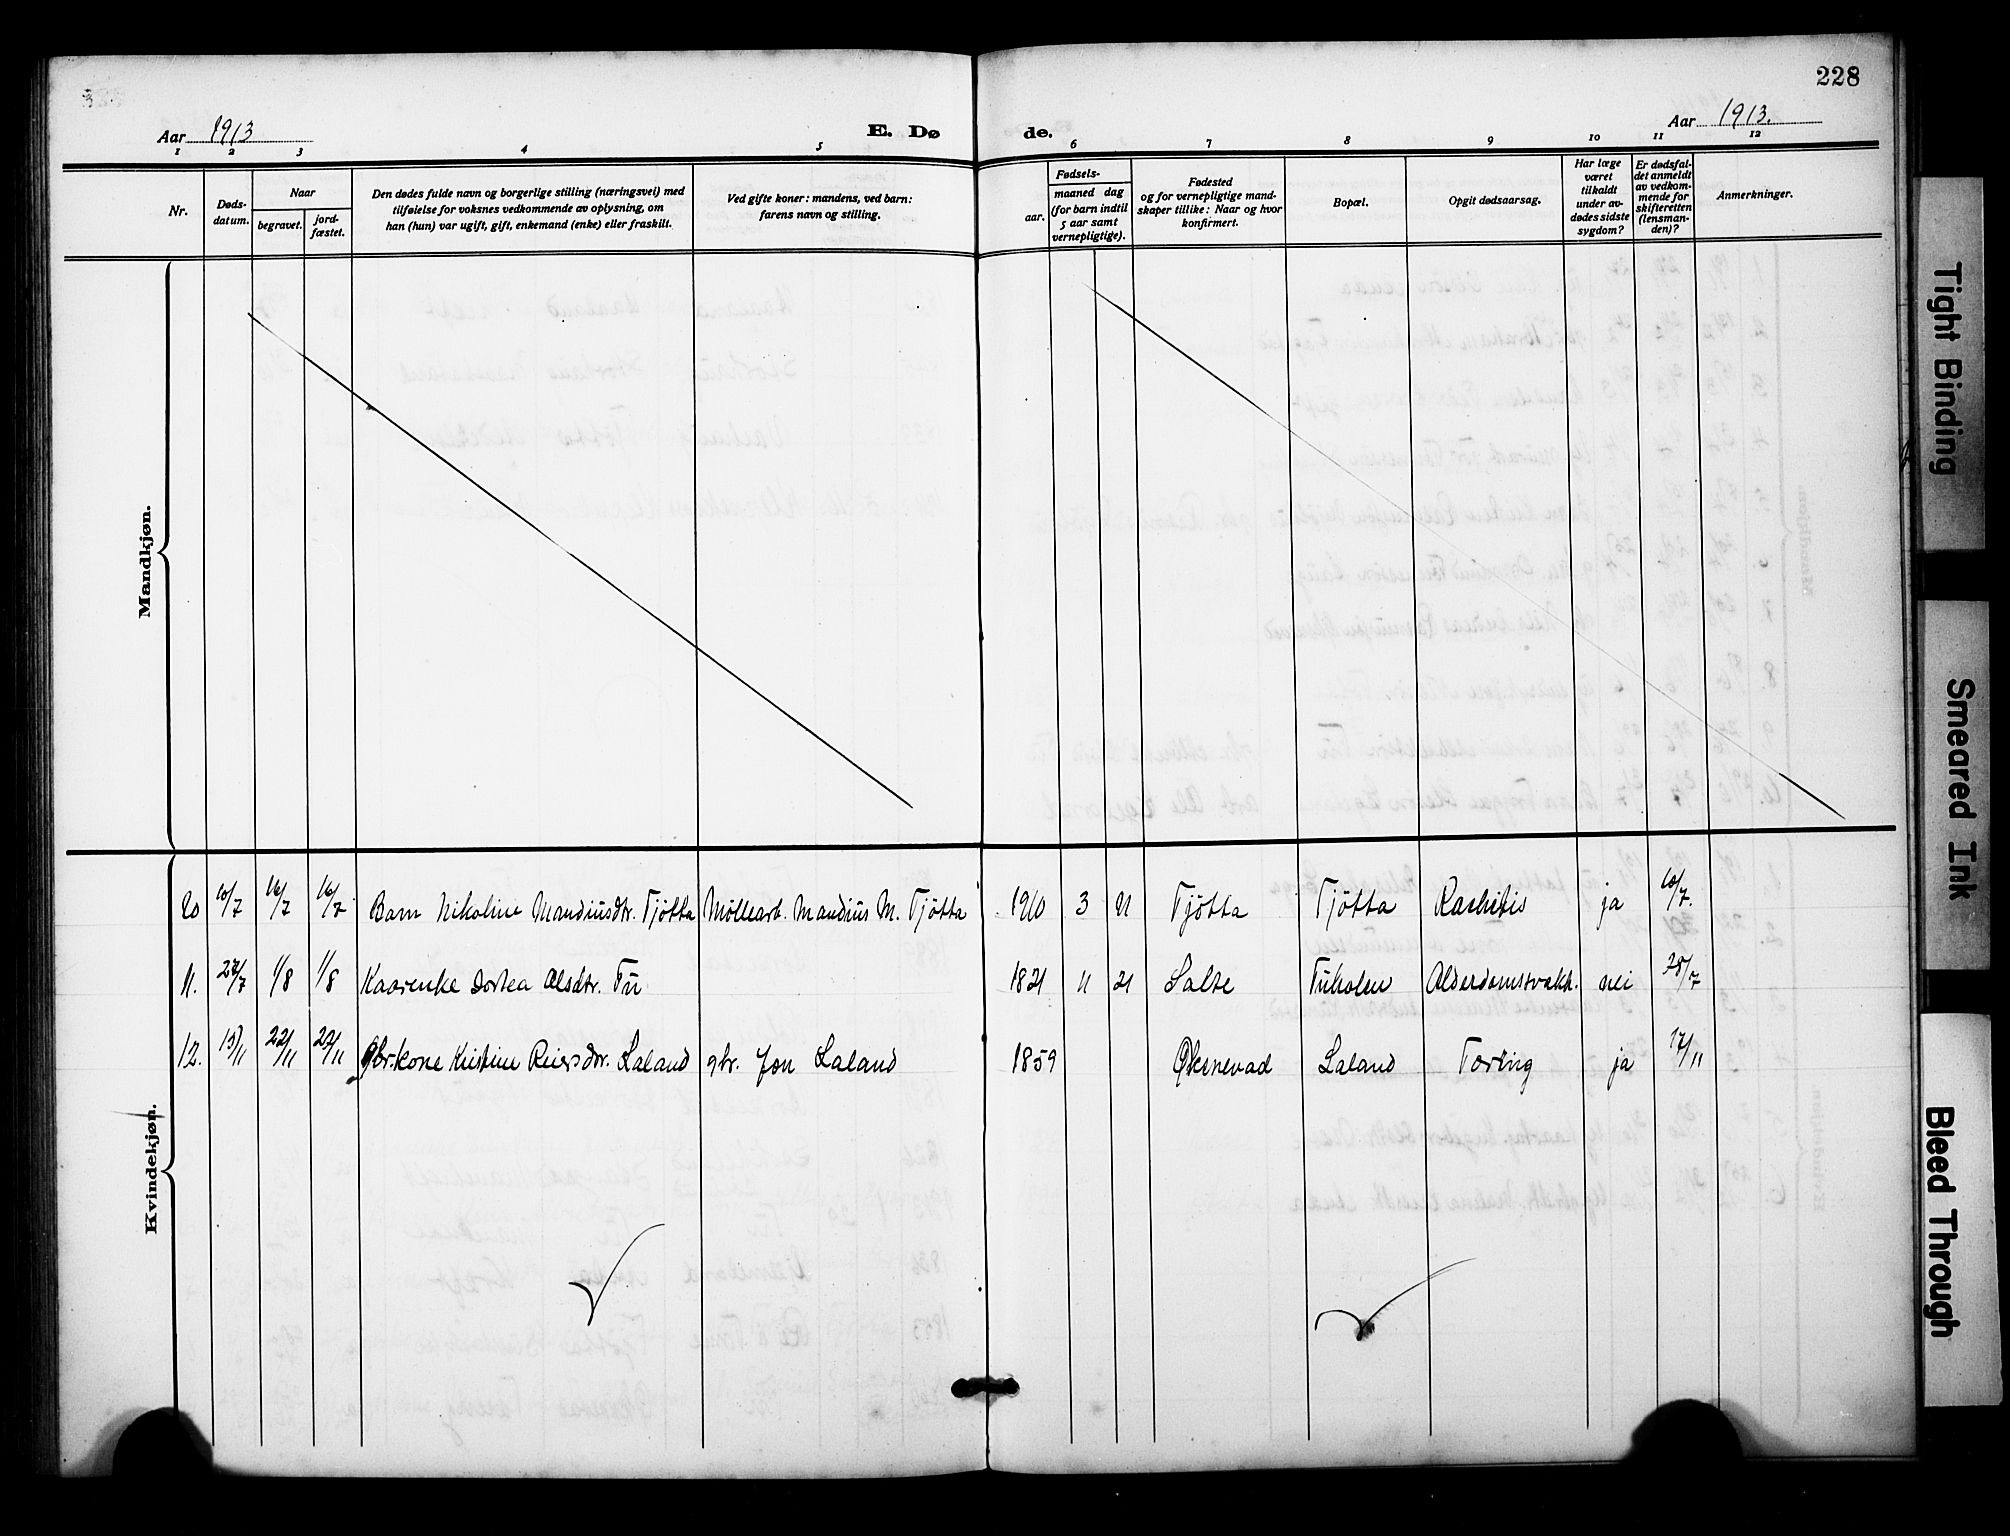 228
Aar 1913 E. Dø de. Aar 1913.
1 2 3 4 5 6 7 8 9 10 11 12
Nr.
Døds-
datum.
Naar
begravet.
jord-
fæstet.
Den dødes fulde navn og borgerlige stilling (næringsvei) med
tilføielse for voksnes vedkommende av oplysning, om
han (hun) var ugift, gift, enkemand (enke) eller fraskilt.
Ved gifte koner: mandens, ved barn:
farens navn og stilling.
Fødsels-
aar.
maaned dag
(for barn indtil
5 aar samt
vernepligtige).
Fødested
og for vernepligtige mand-
skaper tillike: Naar og hvor
konfirmert.
Bopæl.
Opgit dødsaarsag.
Har læge
været
tilkaldt
under av-
dødes sidste
sygdom?
Er dødsfal-
det anmeldt
av vedkom-
mende for
skifteretten
(lensman-
den)?
Anmerkninger.
Mandkjøn.
Kvindekjøn.
10/7 16/7 16/7 Barn Nikoline Mandiusdtr. Tjøtta Møllearb. Mandius M. Tjøtta 1910 3 Tjøtta Tjøtta Rachitis ja 10/7.
11. 27/7 1/8 1/8 Kaarenke Dortea Olsdtr. Tu 1821 11 21 Salte Tuholen Alderdomssvakh. nei 28/7
12. 15/11 22/11 22/11 gbr.kone Kristine Reiersdtr. Laland gbr. Jon Laland 1859 Øksnevad Laland Tæring ja 17/11
Tight Binding
Smeared Ink
Bleed Through